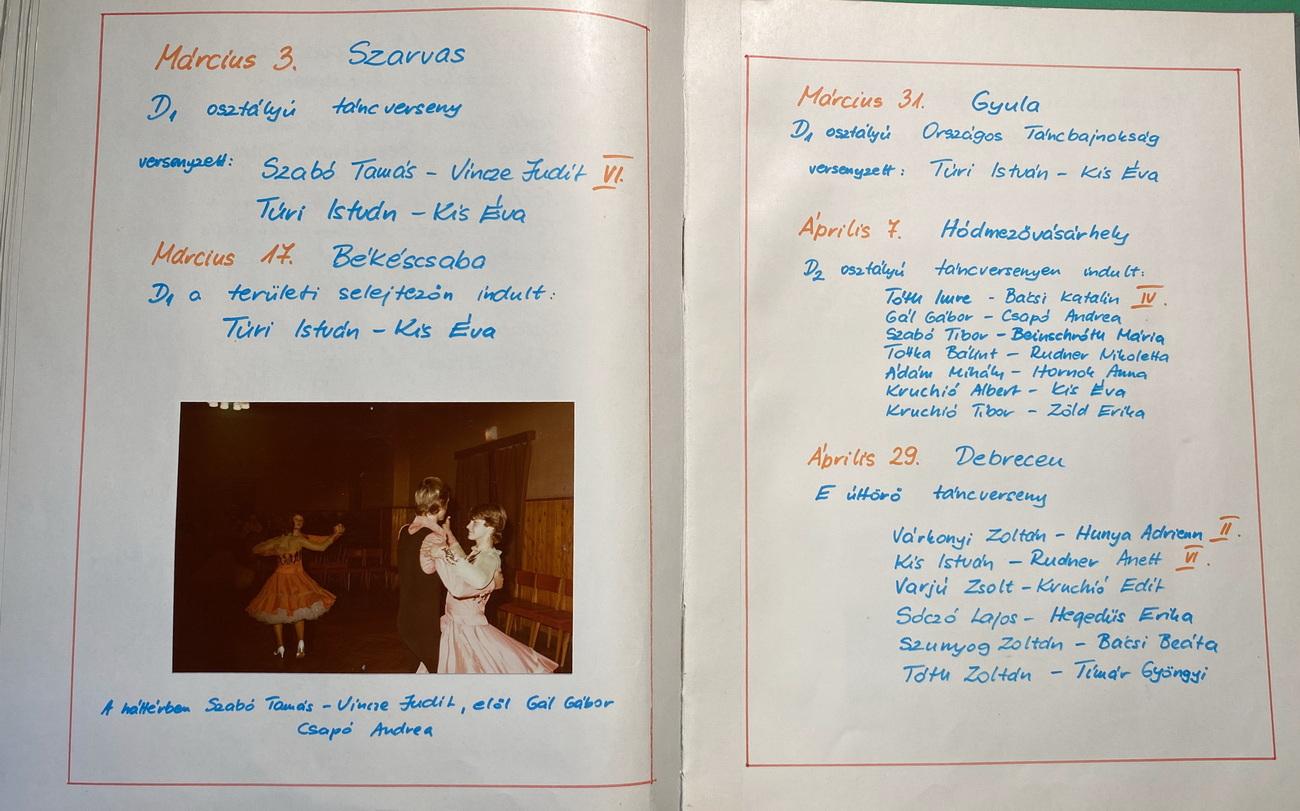 Március 3. Szarvas
D1 osztályú táncverseny
versenyzett: Szabó Tamás - Vincze Judit VI.
Túri István - Kis Éva
Március 17. Békéscsaba
D1 a területi selejtezőn indult:
Túri István - Kis Éva
A háttérben Szabó Tamás - Vincze Judit, elől Gál Gábor
Csapó Andrea
Március 31. Gyula
D1 osztályú Országos Táncbajnokság
versenyzett: Túri István - Kis Éva
Április 7. Hódmezővásárhely
D2 osztályú táncversenyen indult:
Tóth Imre - Bácsi Katalin IV.
Gál Gábor - Csapó Andrea
Szabó Tibor - Beinschróth Mária
Totka Bálint - Rudner Nikoletta
Ádám Mihály - Hornok Anna
Kruchió Albert - Kis Éva
Kruchió Tibor - Zöld Erika
Április 29. Debrecen
E úttörő táncverseny
Várkonyi Zoltán - Hunya Adrienn II.
Kis István - Rudner Anett VI.
Varjú Zsolt - Kruchió Edit
Sóczó Lajos - Hegedüs Erika
Szunyog Zoltán - Bácsi Beáta
Tóth Zoltán - Tímár Gyöngyi